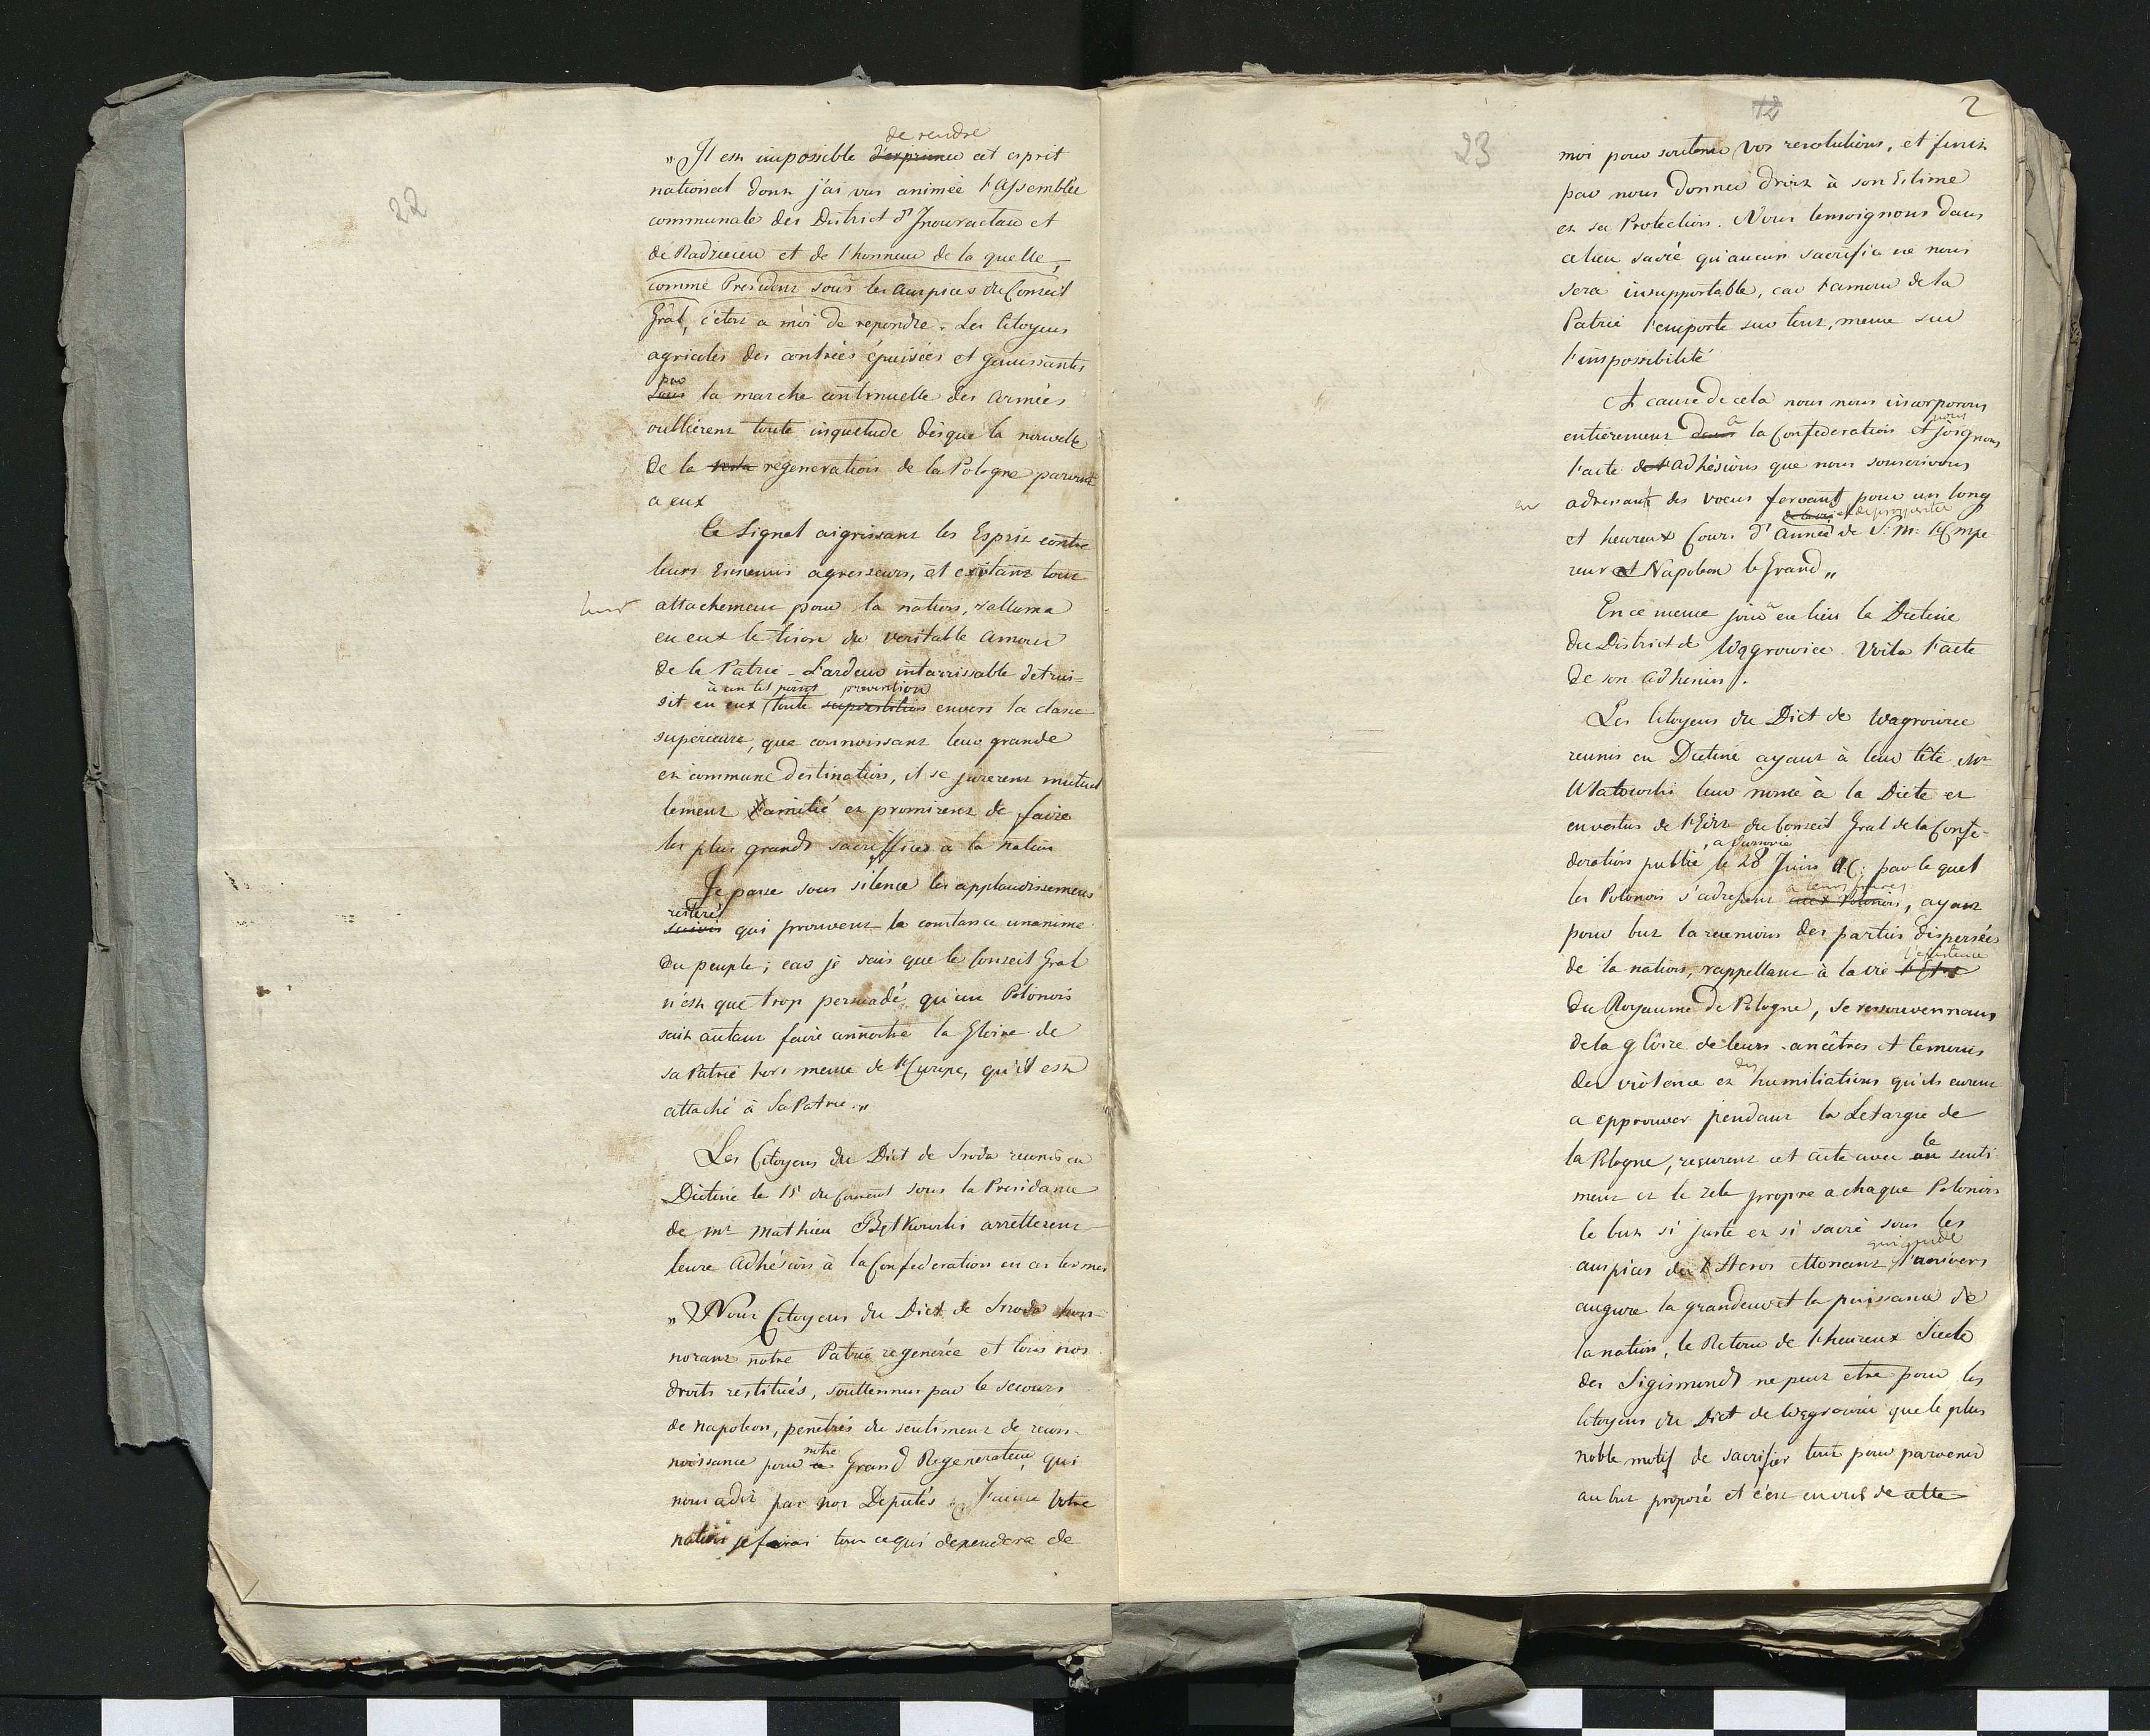 22
de rendre
„ Il est impossible d'exprimer cet esprit
national dont j'ai vu animée l'Assemblée
communale des District d'Inowraclaw et
de Radzieiew et de l'honneur de la quelle,
comme President sous les auspices du Conseil
Gral, c'etoit a moi de repondre. Les Citoyens
agricoles des contrées épuisées et gemissantes
par
sous la marche continuelle des Armées
oublierent toute inquetude dèsque la nouvelle
de la regeneration de la Pologne parvint
a eux
Ce Signal aigrissant les Esprit contre
leurs Ennemis agresseurs, et exitant tout
leur
attachement pour la nation, ralluma
en eux le tison du veritable Amour
de la Patrie - L'ardeur intarrissable detrui=
à un tel point prevention
sit en eux toute superstition envers la classe
superieure, que connoissant leur grande
et commune destination, il se jurerent mutuel
lement l'amitié et promirent de faire
les plus grands sacriffices à la nation
Je passe sous silence les applaudissemens
reiteré
suivis qui prouvent la constance unanime
du peuple; car je sais que le Conseil Gral
n'est que trop persuadé qu'un Polonois
sait autant faire connoitre la Gloire de
sa Patrie hors meme de l'Europe, qu'il est
attaché à Sa Patrie.„
Les Citoyens du Dict de Sroda reunis en
Dietine le 15 du courant sous la Presidance
de mr Mathieu arretterent
leure Adhésion à la Confederation en ces termes
„ Nous Citoyens du Dict de Sroda hon=
norant notre Patrie regenerée et tous nos
droits restitués, souttennus par le secours
de Napoleon, penetrés du sentiment de recon=
notre
noissance pour ce Grand Regenerateur, qui
nous a dit par nos Deputés „ J'aime Votre
nation je ferai tout ce qui dependera de
23
12
2
moi pour soutenir Vos resolutions, et finit
par nous donner droit à son Estime
et sa Protection. Nous temoignons dans
ce lieu sacré qu'aucun sacrifice ne nous
sera insupportable, car l'amour de la
Patrie l'emporte sur tout, meme sur
l'impossibilité
A cause de cela nous nous incorporons
à nous
entierement dans la Confederation et joignons
l'acte de l'adhésions que nous souscrivons
en
adressant des voeux fervant pour un long
de la vie et de prosperité
et heureux Cours d'année de S. M. l'Empe
reur et Napoleon le Grand„
a
En ce meme jour eu lieu la Dietine
du District de Wągrowice. Voila l'acte
de son adhesion.
Les Citoyens du Dict de Wagrowiec
reunis en Dietine ayant à leur tête Mr
leur nonce à la Diete et
en vertus de l'Edit du Conseil Gral de la Confe-
, a Varsovie
deration publié le 28 Juin A C; par le quel
à leurs freres
les Polonois s'adressent aux Polonois, ayant
pour but la reunion des parties dispersées
l'existence
de la nation, rappellant à la vie l'Etre
du Royaume de Pologne, se ressouvennant
de la gloire de leurs ancêtres et temoins
des
des violence et humiliations qu'ils eurent
a epprouver pendant la Letargie de
le
la Plogne, reçurent cet acte avec un senti
ment et le zele propre a chaque Polonois
le but si juste et si sacré sous les
qui guide
auspices de Heros ettonant l'univers
augure la grandeur et la puissance de
la nation, le Retour de l'heureux Siecle
des Sigismunds ne peut etre pour les
Citoyens du Dict de Wagrowiec que le plus
noble motif de sacrifier tout pour parvenir
au but proposé et c'est en vue de cette